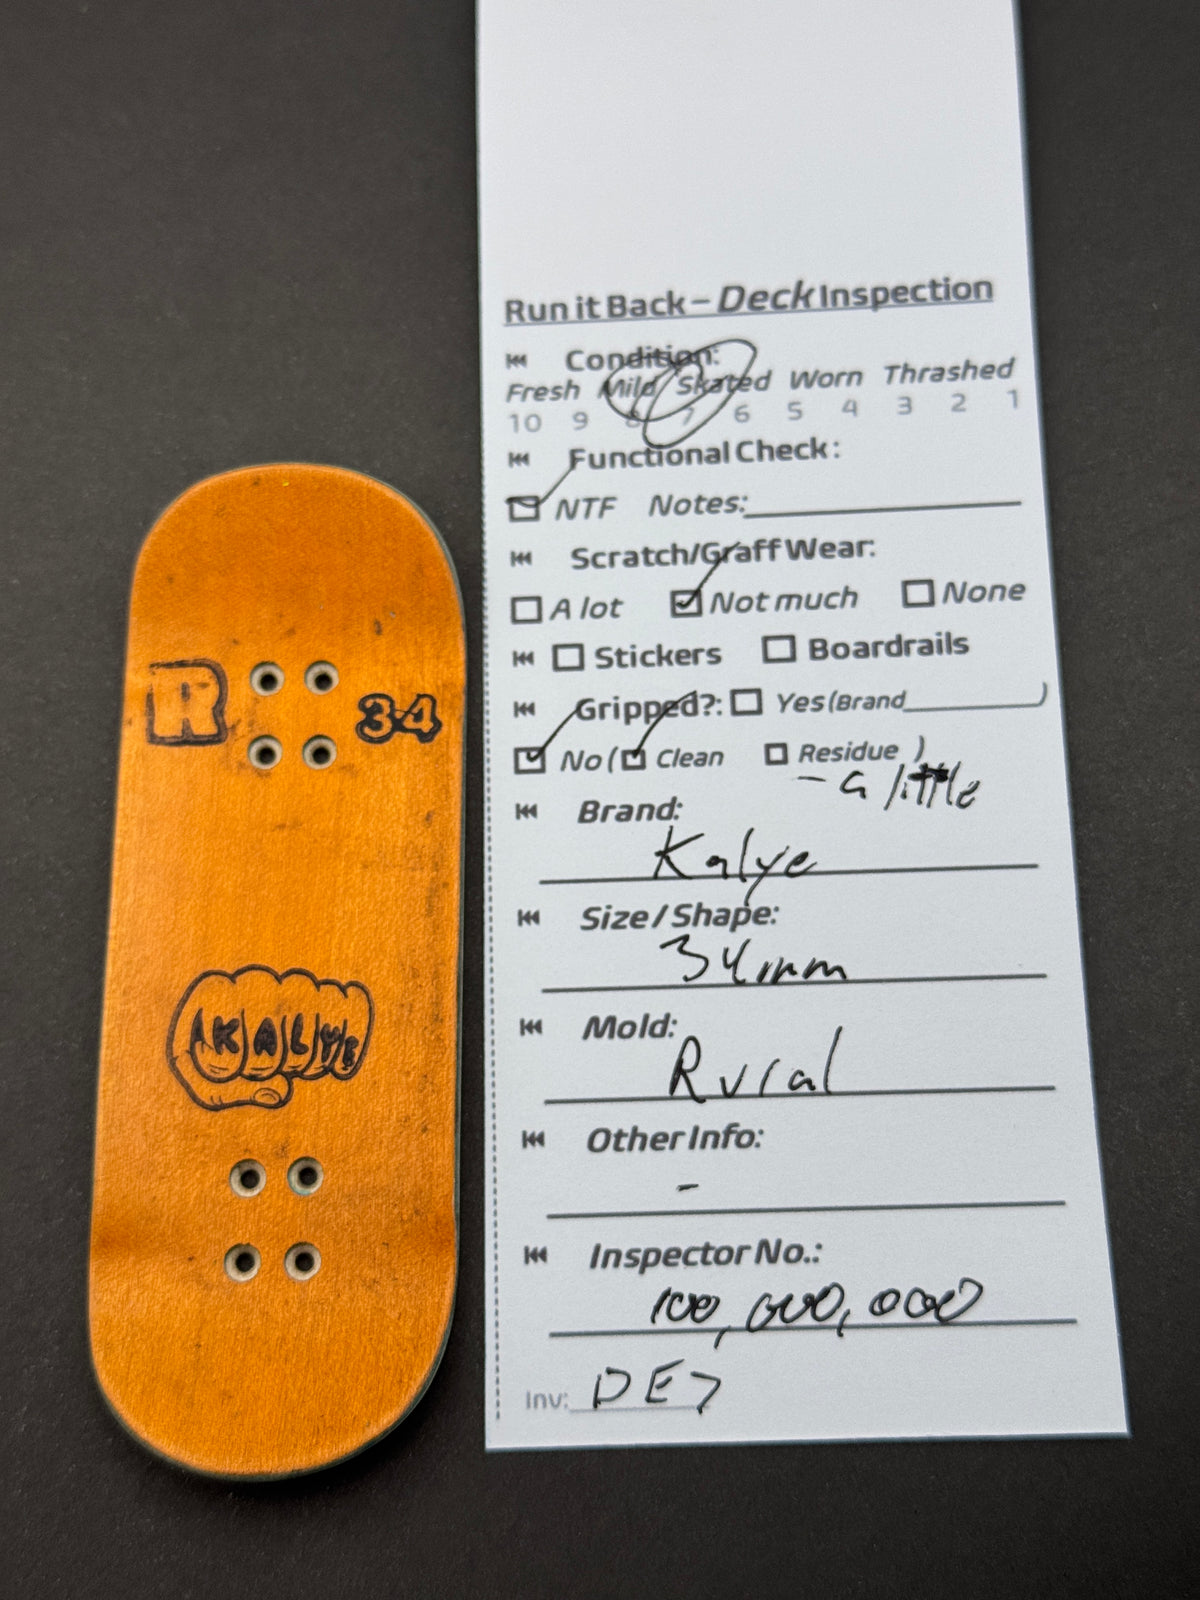 R
34
KALYE
Run it Back – Deck Inspection
Condition:
Fresh Mild Skated Worn Thrashed
10 9 8 7 6 5 4 3 2 1
Functional Check:
NTF Notes:
Scratch/Graff Wear:
A lot Not much None
Stickers Boardrails
Gripped?: Yes (Brand )
No ( Clean Residue )
- a little
Brand:
Kalye
Size / Shape:
34mm
Mold:
Rural
Other Info:
-
Inspector No.:
100,000,000
Inv: DE7